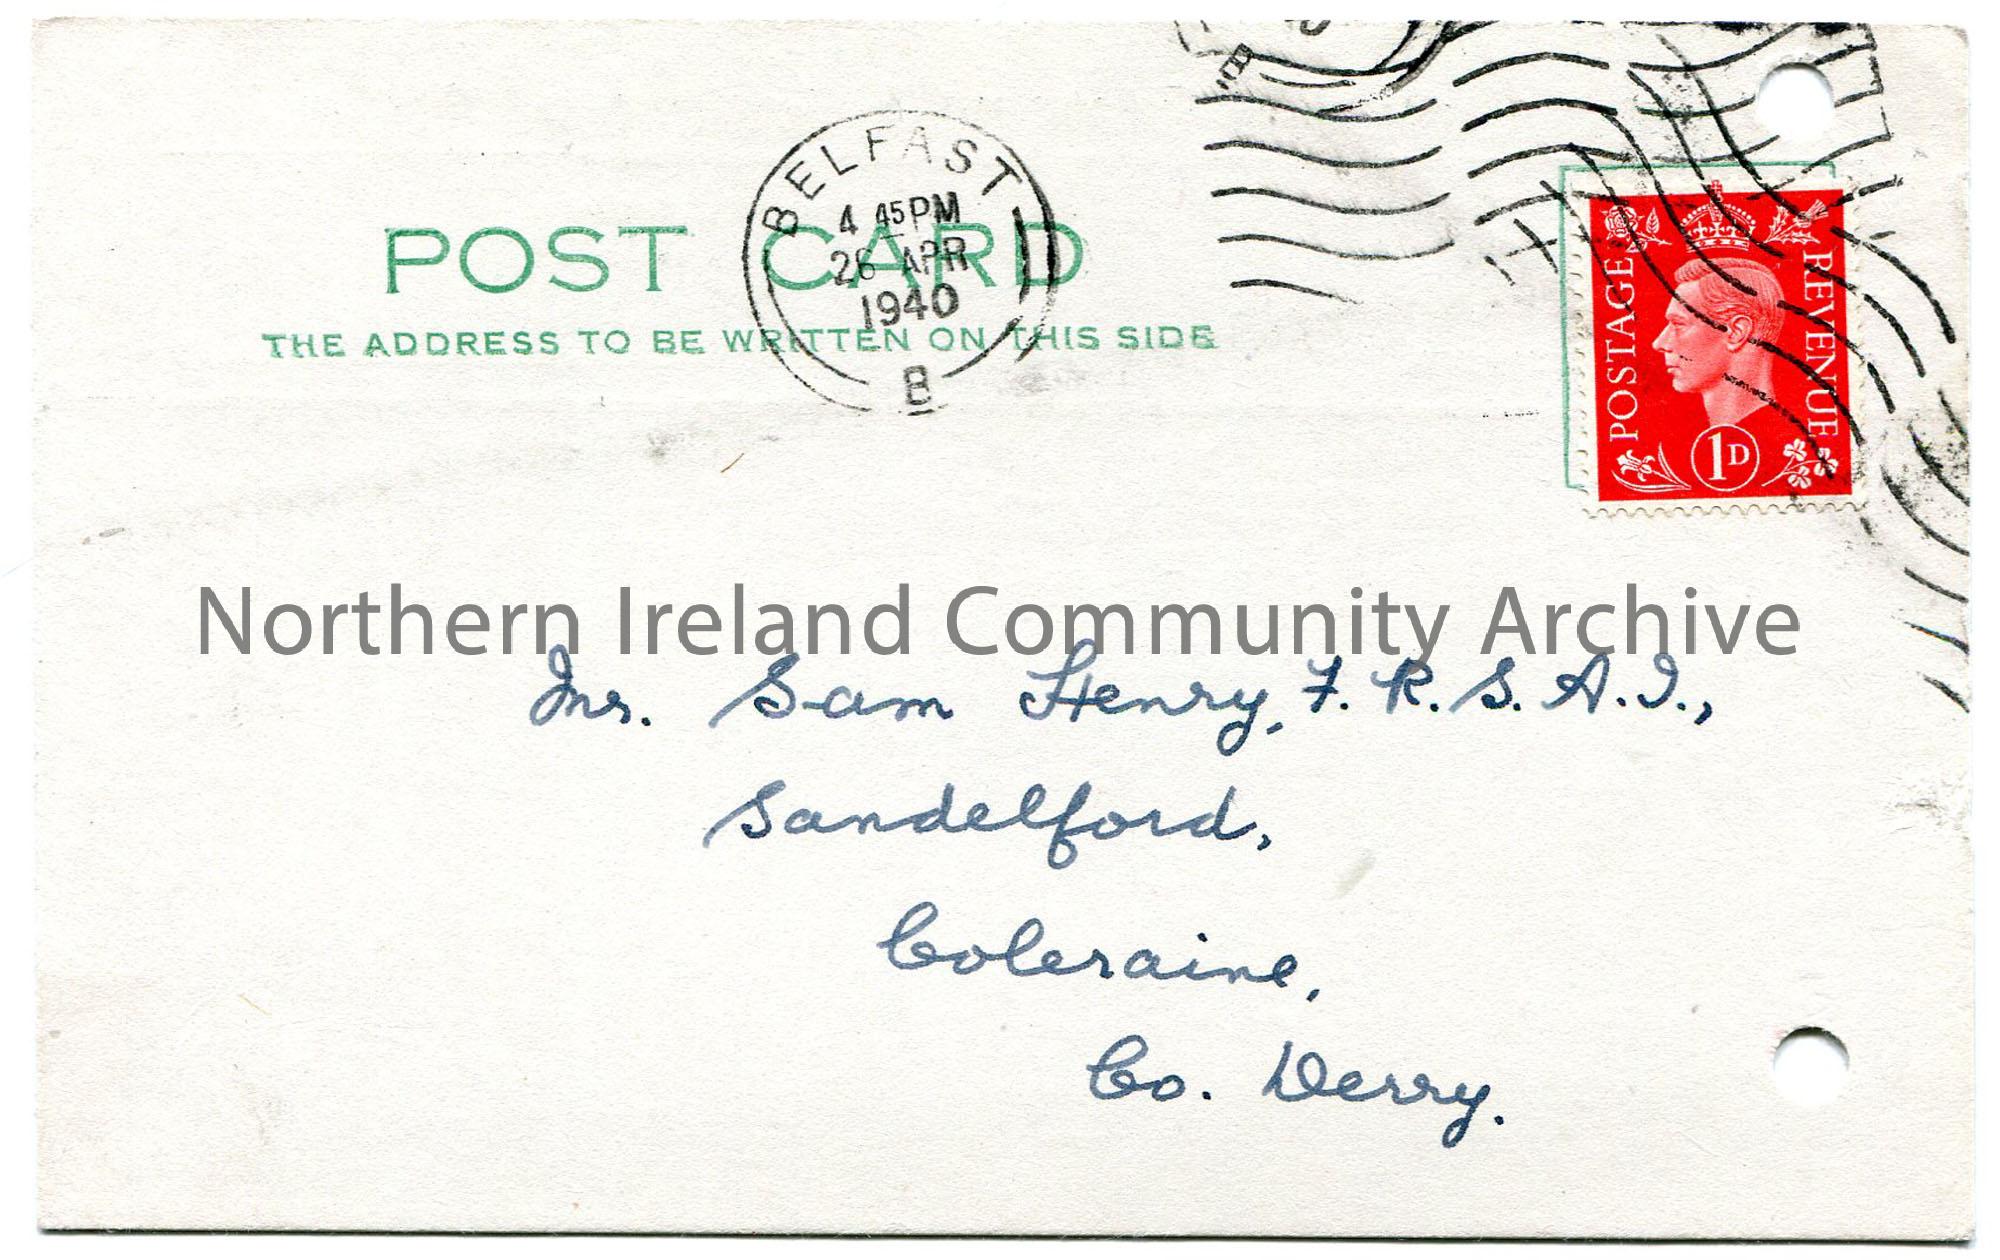 BELFAST
4 45PM
26 APR
1940
B
POST CARD
THE ADDRESS TO BE WRITTEN ON THIS SIDE
POSTAGE REVENUE
1D
Northern Ireland Community Archive
Mr. Sam Henry, F.R.S.A.I.,
Sandelford,
Coleraine,
Co. Derry.